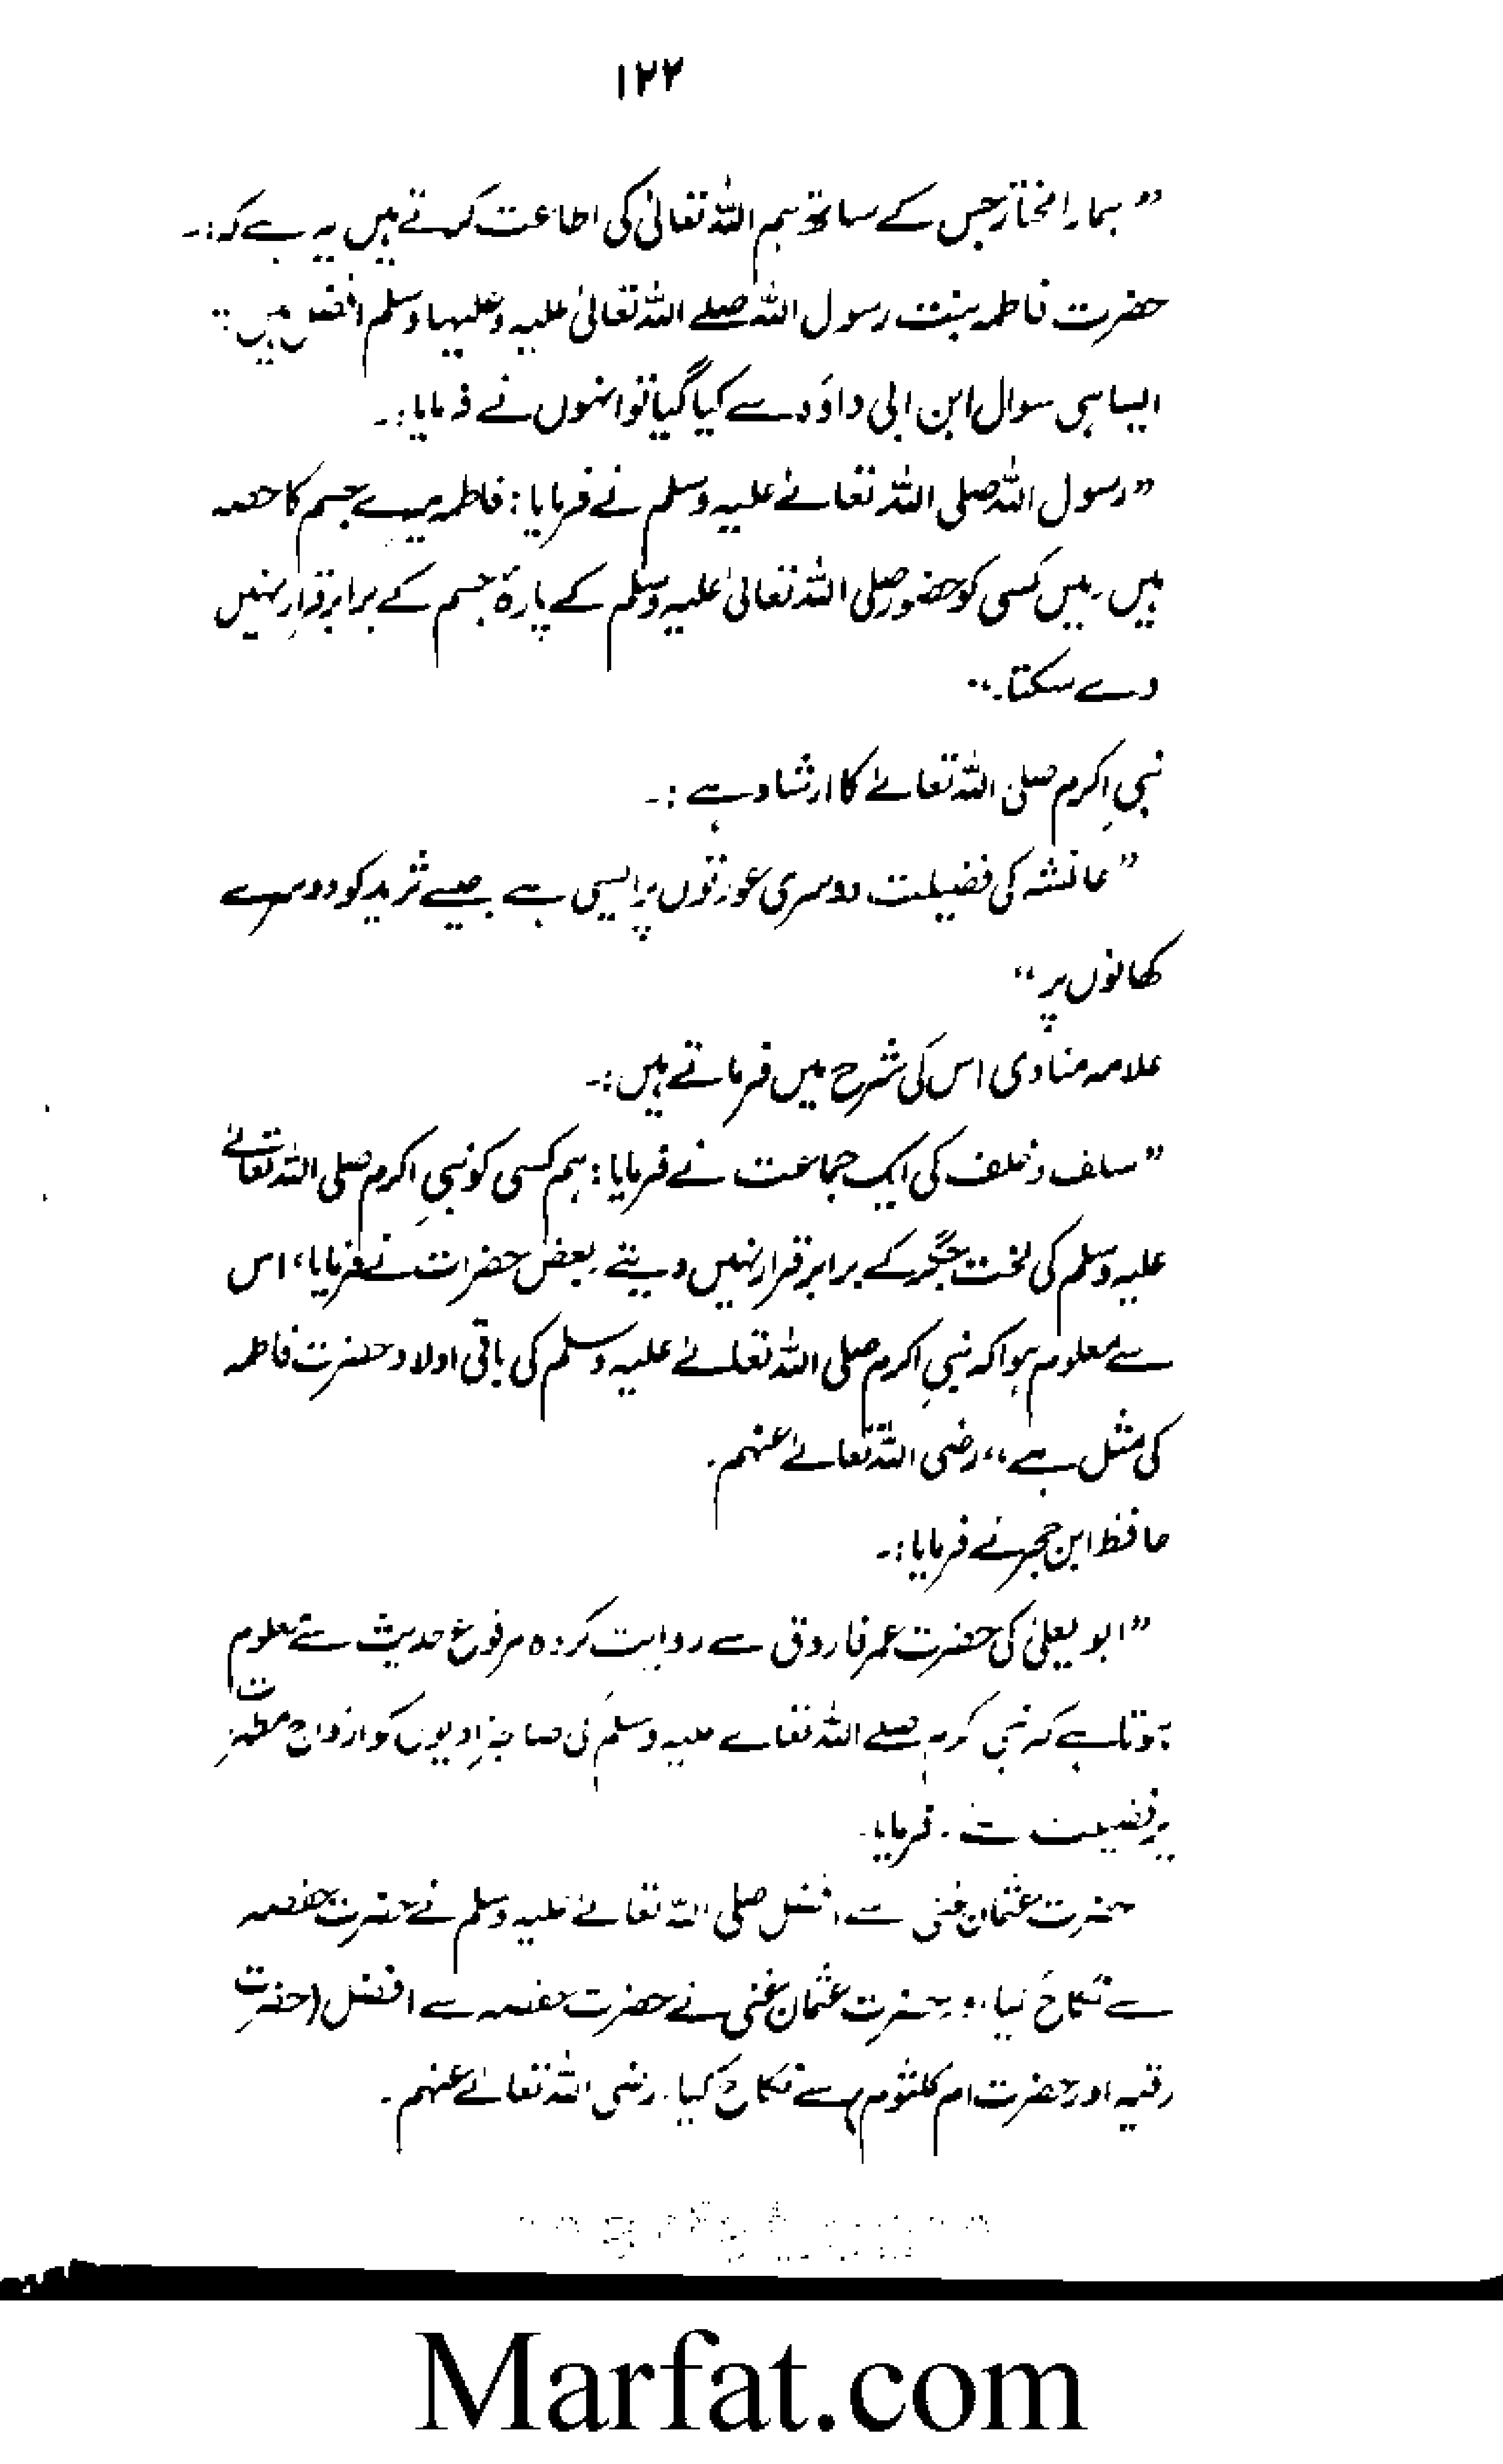 ۱۲۲
”ہمارا مختار جس کے ساتھ ہم اللہ تعالیٰ کی اطاعت کرتے ہیں یہ ہے کہ:۔
حضرت فاطمہ بنت رسول اللہ صلے اللہ تعالیٰ علیہ وعلیہا وسلم افضل ہیں“
ایسا ہی سوال ابن ابی داؤد سے کیا گیا تو انہوں نے فرمایا:۔
”رسول اللہ صلی اللہ تعالےٰ علیہ وسلم نے فرمایا: فاطمہ میرے جسم کا حصہ
ہیں، میں کسی کو حضور صلی اللہ تعالیٰ علیہ وسلم کے پارۂ جسم کے برابر قرار نہیں
دے سکتا۔“
نبیِ اکرم صلی اللہ تعالےٰ کا ارشاد ہے:۔
”عائشہ کی فضیلت دوسری عورتوں پر ایسی ہے جیسے ثرید کو دوسرے
کھانوں پر“
علامہ مناوی اس کی شرح میں فرماتے ہیں:۔
”سلف و خلف کی ایک جماعت نے فرمایا: ہم کسی کو نبیِ اکرم صلی اللہ تعالےٰ
علیہ وسلم کی لختِ جگر کے برابر قرار نہیں دیتے۔ بعض حضرات نے فرمایا، اس
سے معلوم ہوا کہ نبیِ اکرم صلی اللہ تعالےٰ علیہ وسلم کی باقی اولاد حضرت فاطمہ
کی مثل ہے“ رضی اللہ تعالےٰ عنہم۔
حافظ ابن حجر نے فرمایا:۔
”ابو یعلیٰ کی حضرت عمر فاروق سے روایت کردہ مرفوع حدیث سے معلوم
ہوتا ہے کہ نبی کریم صلے اللہ تعالے علیہ وسلم کی صاحبزادیوں کو ازواج مطہرات
پر فضیلت ہے۔ فرمایا۔
حضرت عثمان غنی سے افضل صلی اللہ تعالےٰ علیہ وسلم نے حضرت حفصہ
سے نکاح کیا، اور حضرت عثمان غنی نے حضرت حفصہ سے افضل (حضرت
رقیہ اور حضرت ام کلثوم) سے نکاح کیا۔ رضی اللہ تعالےٰ عنہم۔
Marfat.com